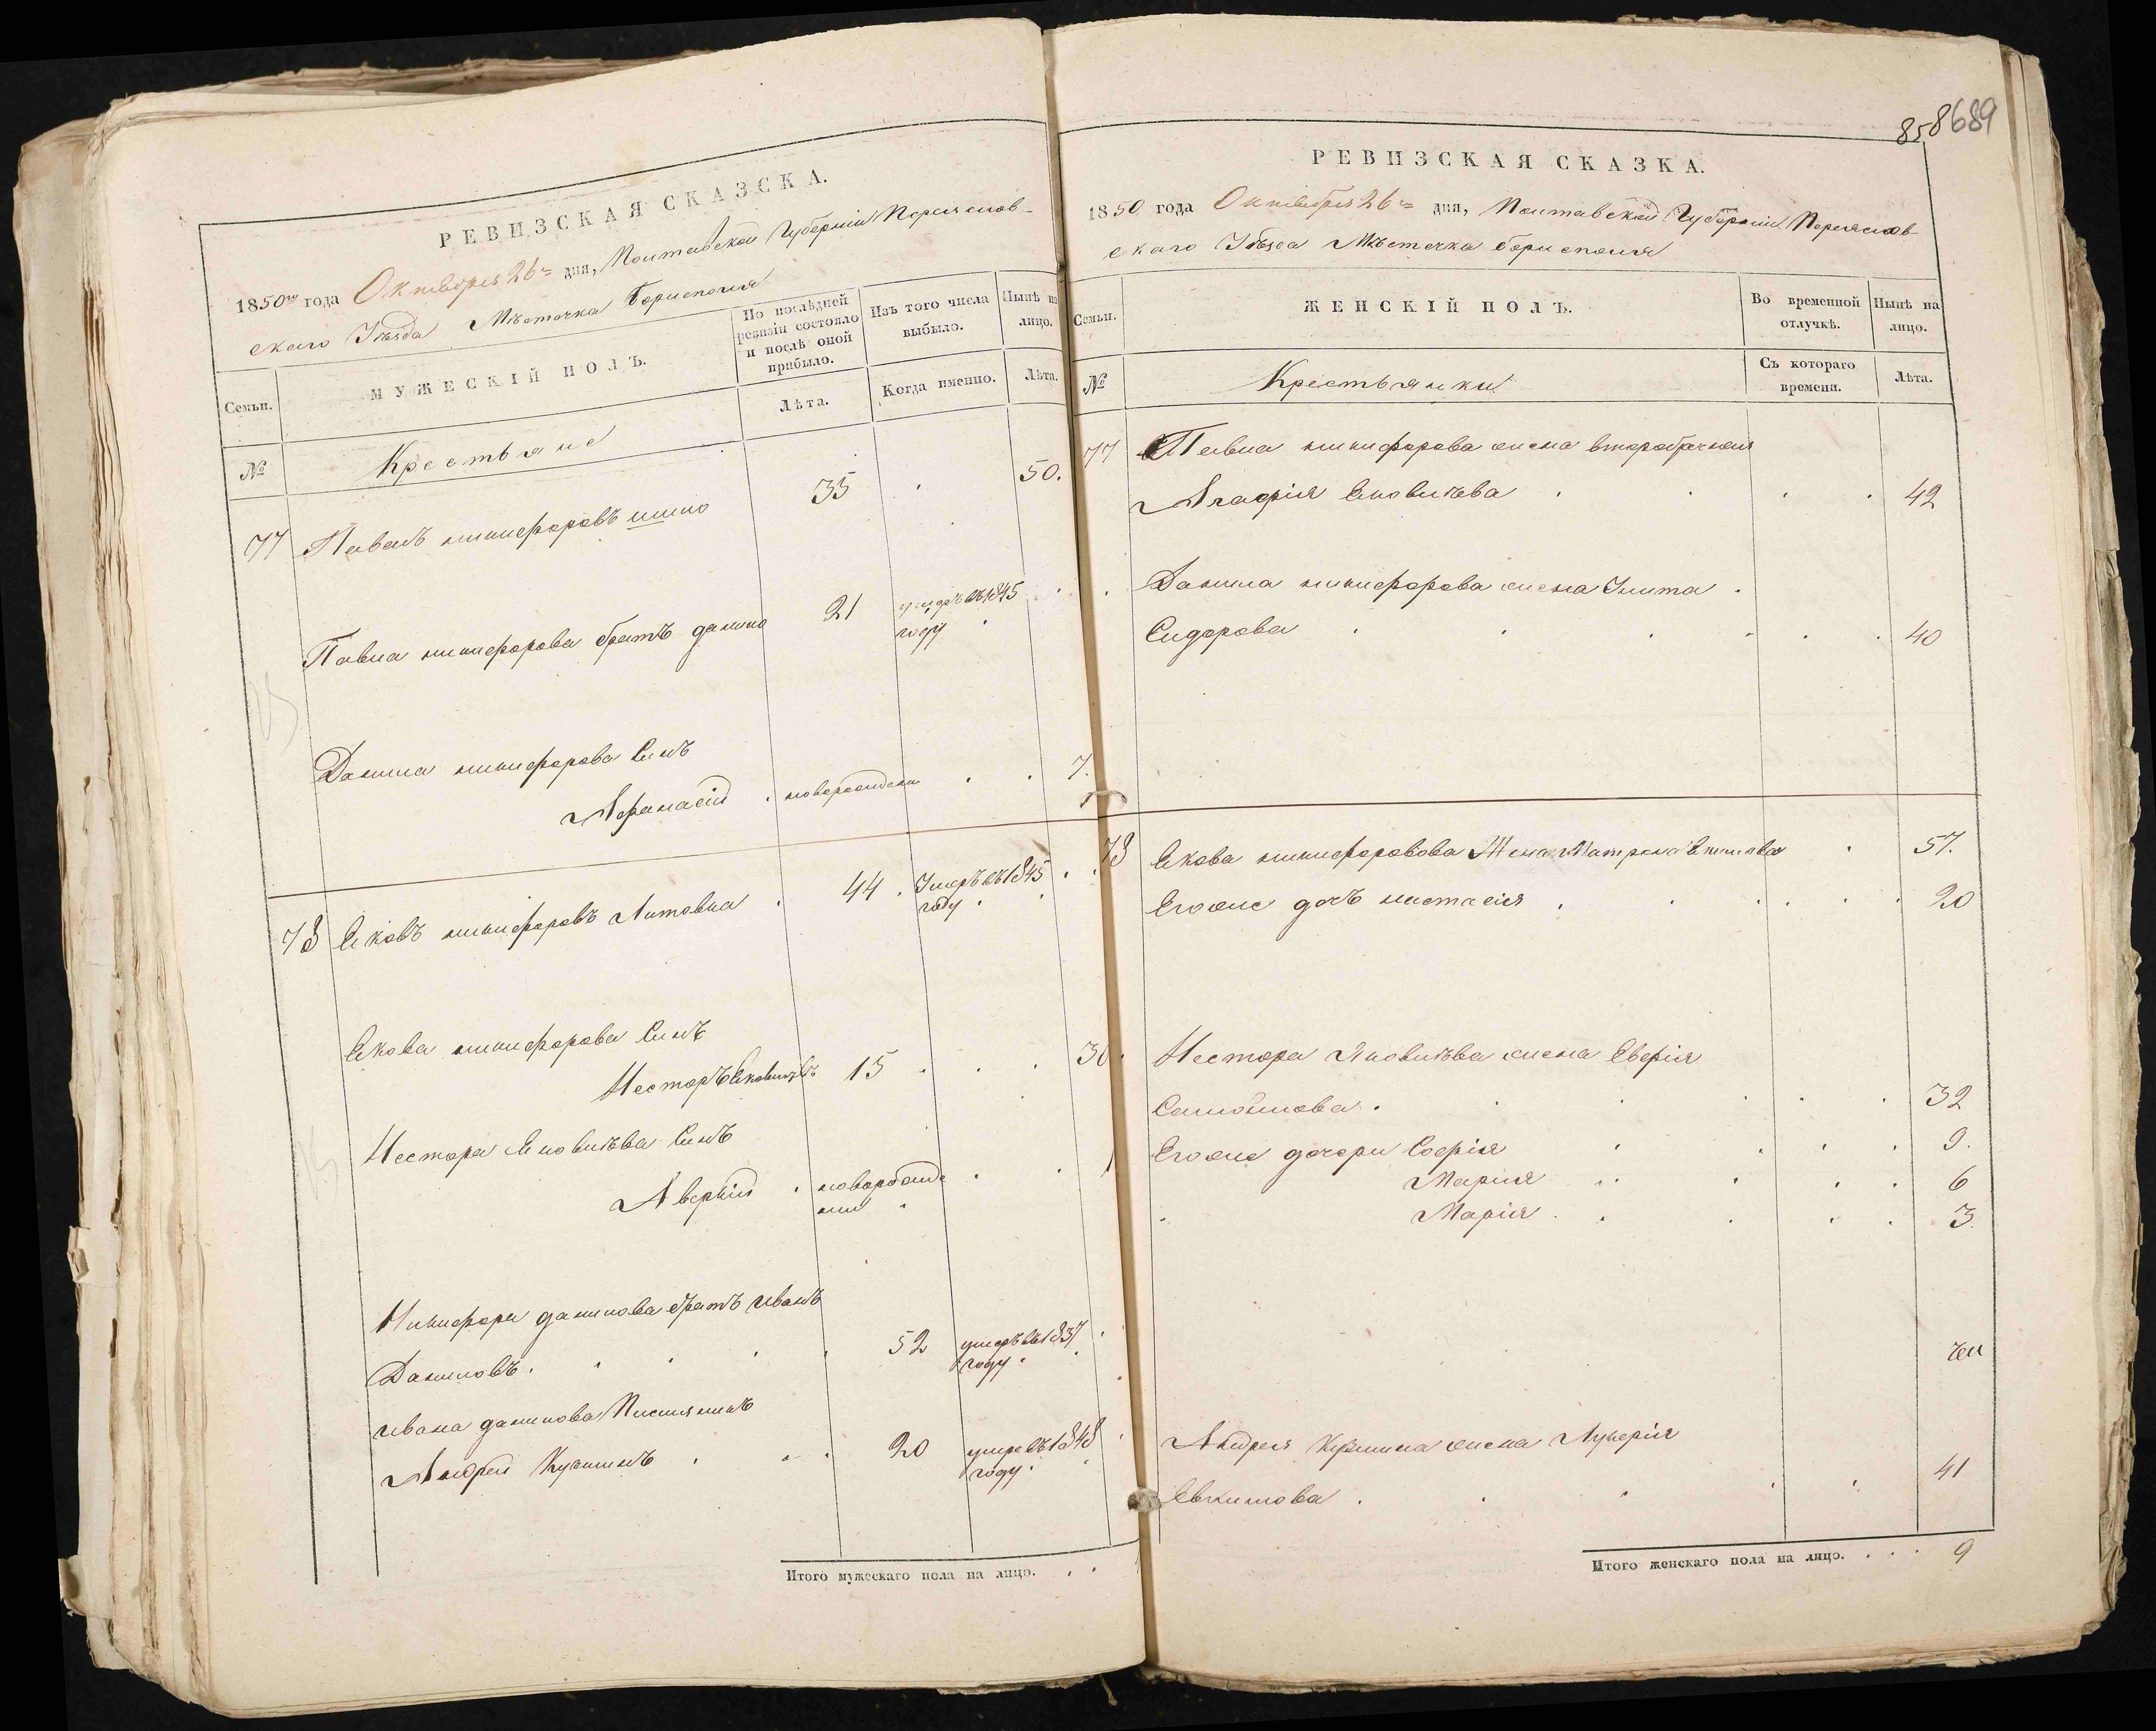 РЕВИЗСКАЯ СКАЗСКА.
1850го года Октября 26го дня, Полтавской Губерніи Переяслов-
скаго Уѣзда Мѣстечка Борисполя
Семьи.
МУЖЕСКІЙ ПОЛЪ.
По послѣдней ревизіи состояло и послѣ оной прибыло.
Изъ того числа выбыло.
Нынѣ на лицо.
№
Крестьяне
Лѣта.
Когда именно.
Лѣта.
77 Павелъ никифоровъ 35 50.
Павла никифорова братъ данило 21 умеръ въ 1845
году
Данила никифорова Сынъ
Афанасій новорожденн 7.
78 Яковъ никифоровъ Литовка 44 Умеръ въ 1845
году
Якова никифорова Сынъ
Несторъ Яковлѣвъ 15 30.
Нестора Яковлѣва Сынъ
Аверкій новорожде
нни 1
Никифора данилова братъ иванъ
Даниловъ. 52 умеръ въ 1837
году
ивана данилова
Андрей 20 умре въ 1848
году
Итого мужескаго пола на лицо. . .
858 689
РЕВИЗСКАЯ СКАЗКА.
1850 года Октября 26го дня, Полтавской Губерніи Переяслов-
скаго Уѣзда Мѣстечка Борисполя
Семьи.
ЖЕНСКІЙ ПОЛЪ.
Во временной отлучкѣ.
Нынѣ на лицо.
№
Крестьянки
Съ котораго времени.
Лѣта.
77 Павла никифорова жена второбрачная
Агафія Яковлѣва 42
Данила никифорова жена Улита
Сидорова 40
78 Якова никифоровова Жена Матрена 57.
Егоже дочь настасія 20
Нестора Яковлѣва жена
Самойлова 32
Егоже дочери Софія 9.
Марія 6
Марія 3.
Андрея жена Лукерія
Евкимова 41
Итого женскаго пола на лицо. . . . 9